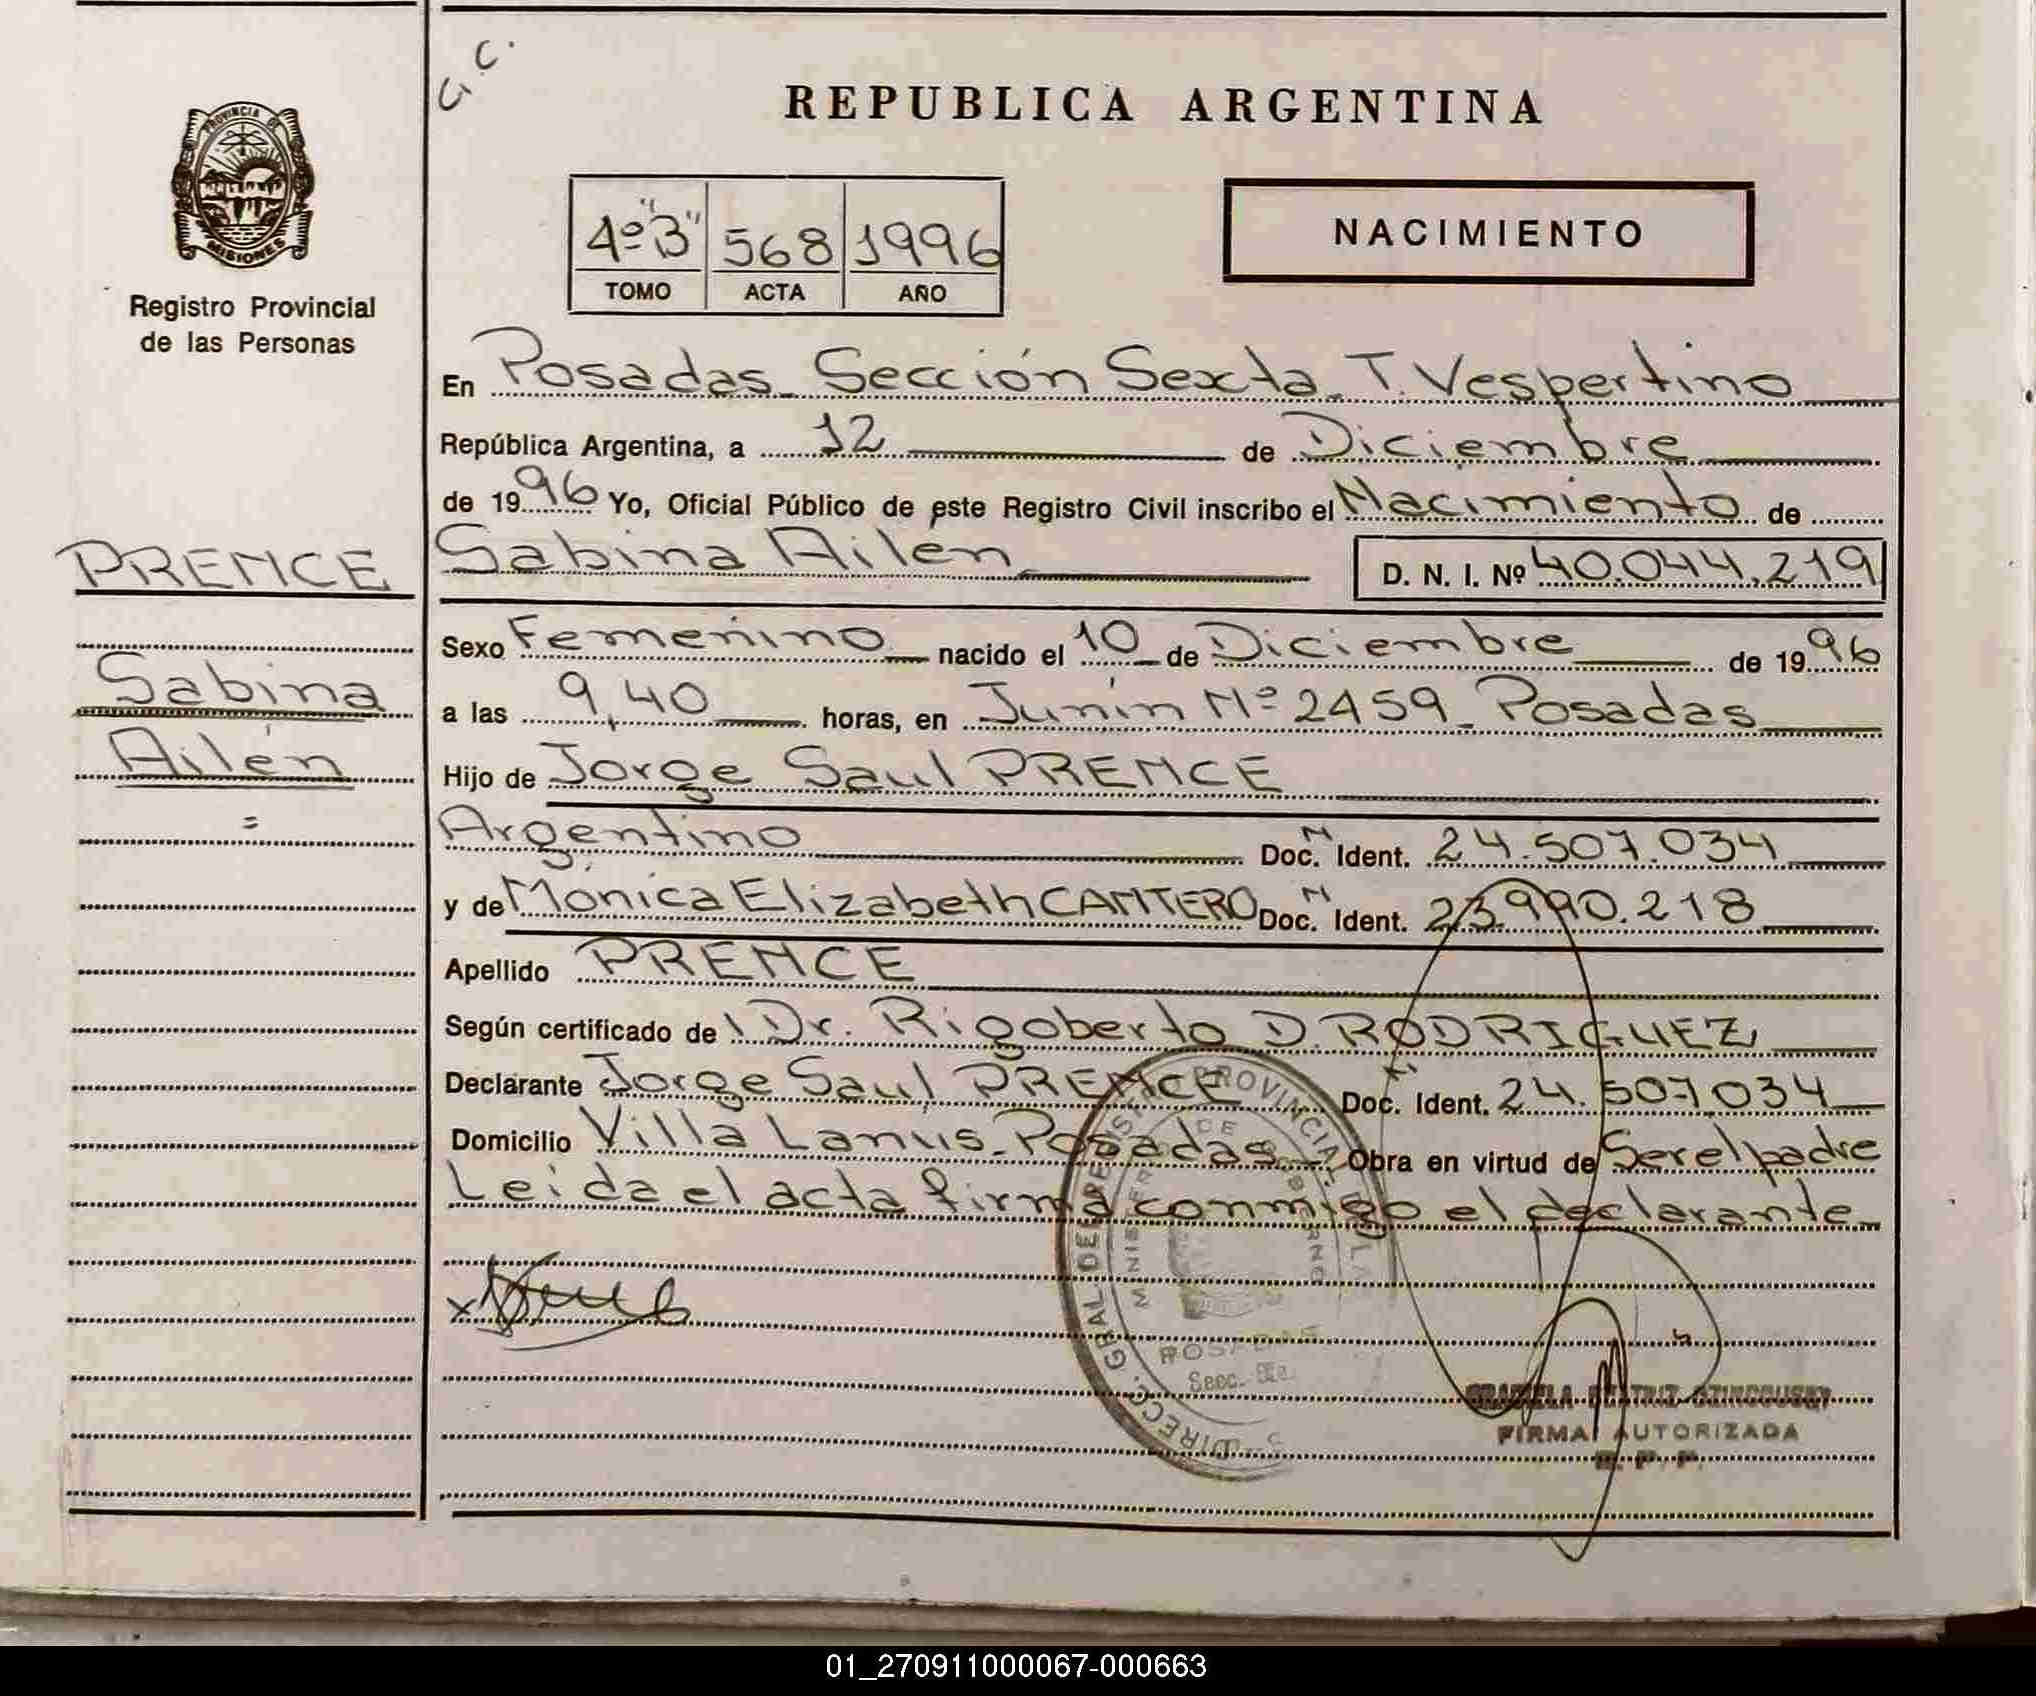 G. C.
REPUBLICA ARGENTINA
PROVINCIA DE
MISIONES
Registro Provincial
de las Personas
4º "B" 568 1996
TOMO ACTA AÑO
NACIMIENTO
En Posadas_ Sección Sexta_ T. Vespertino
República Argentina, a 12 de Diciembre
de 1996 Yo, Oficial Público de este Registro Civil inscribo el Nacimiento de
PRENCE
Sabina Ailen D. N. I. Nº 40.044.219
Sexo Femenino nacido el 10 de Diciembre de 1996
Sabina
a las 9,40 horas, en Junín Nº 2459_ Posadas
Ailén
Hijo de Jorge Saul PRENCE
=
Argentino Doc. N Ident. 24.507.034
y de Mónica Elizabeth CANTERO Doc. N Ident. 23.990.218
Apellido PRENCE
Según certificado de Dr. Rigoberto D. RODRIGUEZ
Declarante Jorge Saul PRENCE Doc. Ident. 24.507.034
Domicilio Villa Lanús_ Posadas Obra en virtud de Ser el padre
Leida el acta firma conmigo el declarante
POSADAS
Secc.
FIRMA AUTORIZADA
R. P. P.
01_270911000067-000663